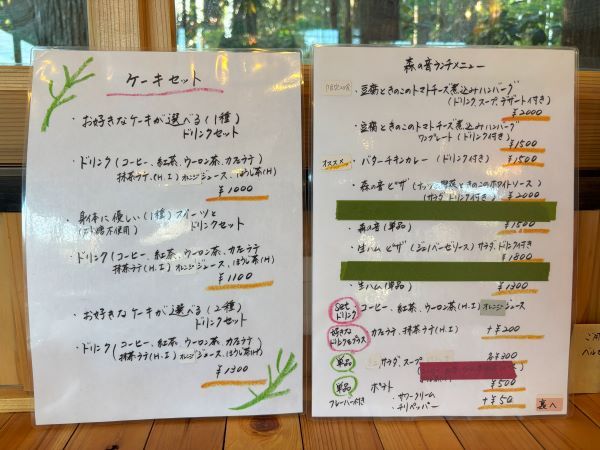 ケーキセット
・お好きなケーキが選べる(1種)
ドリンクセット
・ドリンク(コーヒー、紅茶、ウーロン茶、カフェラテ
抹茶ラテ(H.I)オレンジジュース、ほうじ茶(H)
¥1000
・身体に優しい(1種)スイーツと
ドリンクセット
・ドリンク(コーヒー、紅茶、ウーロン茶、カフェラテ
抹茶ラテ(H.I)オレンジジュース、ほうじ茶(H)
¥1100
・お好きなケーキが選べる(2種)
ドリンクセット
・ドリンク(コーヒー、紅茶、ウーロン茶、カフェラテ
抹茶ラテ(H.I)オレンジジュース、ほうじ茶(H)
¥1300
森の音ランチメニュー
・豆腐ときのこのトマトチーズ煮込みハンバーグ
(ドリンク スープ デザート付き)
¥2000
・豆腐ときのこのトマトチーズ煮込みハンバーグ
ワンプレート(ドリンク付き)
¥1500
オススメ ・バターチキンカレー(ドリンク付き) ¥1500
・森の音ピザ(ナッツ 野菜ときのこのホワイトソース)
(サラダ ドリンク付き) ¥2000
森の音(単品) ¥1500
・生ハムピザ(ジェノベーゼソース)サラダ、ドリンク付き
¥1800
生ハム(単品) ¥1300
Set ドリンク ・コーヒー、紅茶、ウーロン茶(H.I)オレンジジュース
好きなドリンクをプラス カフェラテ、抹茶ラテ(H.I) +¥200
単品 サラダ、スープ 各¥300
単品 ポテト ¥500
フレーバー付き ・サワークリーム
・チリペッパー +¥50
裏へ